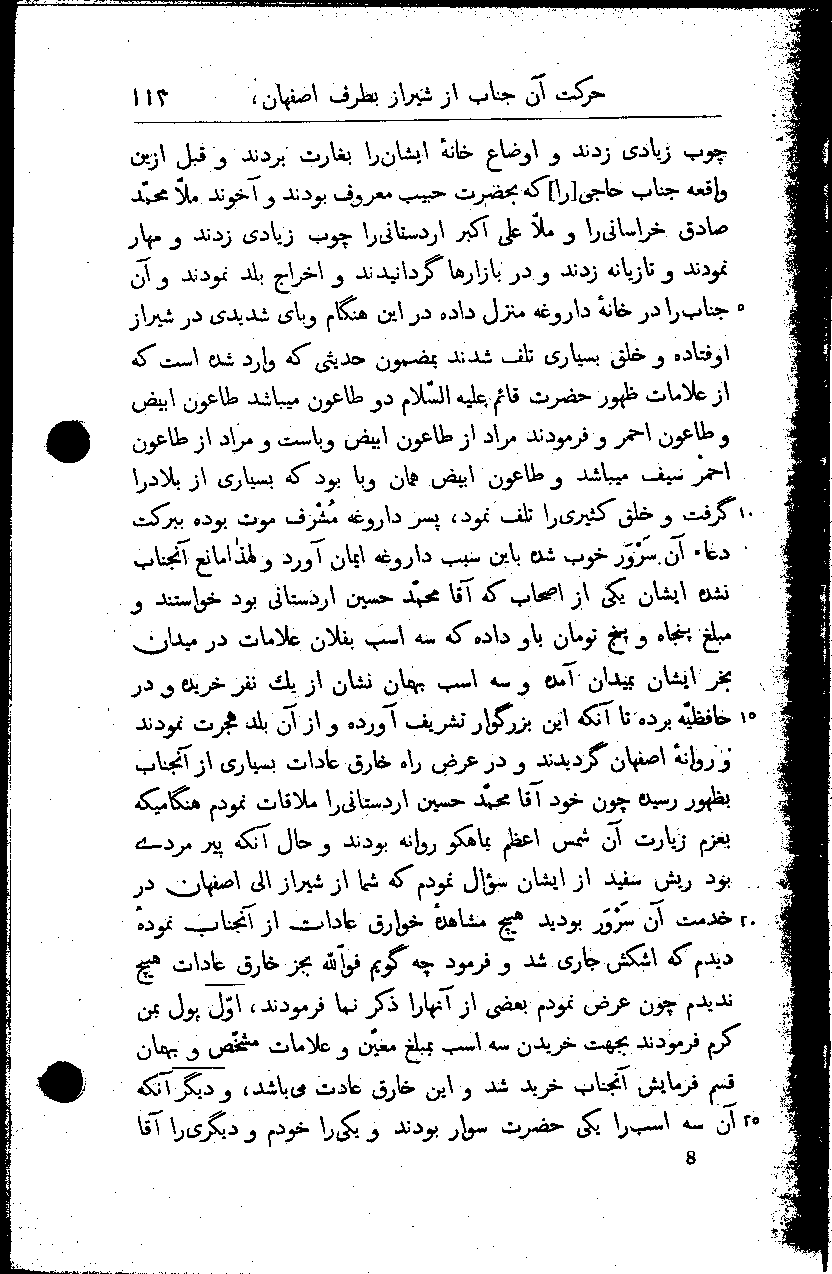 حرکت آن جناب از شیراز بطرف اصفهان، ۱۱۳
چوب زیادی زدند و اوضاع خانهٔ ایشان‌را بغارت بردند و قبل ازین
واقعه جناب حاجی[را] که بحضرت حبیب معروف بودند و آخوند ملّا محمّد
صادق خراسانی‌را و ملّا علی اکبر اردستانی‌را چوب زیادی زدند و مهار
نمودند و تازیانه زدند و در بازارها گردانیدند و اخراج بلد نمودند و آن
۵ جناب‌را در خانهٔ داروغه منزل داده در این هنگام وبای شدیدی در شیراز
اوفتاده و خلق بسیاری تلف شدند بمضمون حدیثی که وارد شده است که
از علامات ظهور حضرت قائم علیه السّلام دو طاعون میباشد طاعون ابیض
و طاعون احمر و فرمودند مراد از طاعون ابیض وباست و مراد از طاعون
احمر سیف میباشد و طاعون ابیض همان وبا بود که بسیاری از بلادرا
۱۰ گرفت و خلق کثیری‌را تلف نمود، پسر داروغه مُشْرف موت بوده ببرکت
دعاء آن سَرْوَر خوب شده باین سبب داروغه ایمان آورد و لهٰذا مانع آنجناب
نشده ایشان یکی از اصحاب که آقا محمّد حسین اردستانی بود خواستند و
مبلغ پنجاه و پنج تومان باو داده که سه اسب بفلان علامات در میدان
بخر ایشان بمیدان آمده و سه اسب بهمان نشان از یك نفر خریده و در
۱۵ حافظیّه برده تا آنکه این بزرگوار تشریف آورده و از آن بلد هجرت نمودند
و روانهٔ اصفهان گردیدند و در عرض راه خارق عادات بسیاری از آنجناب
بظهور رسیده چون خود آقا محمّد حسین اردستانی‌را ملاقات نمودم هنگامیکه
بعزم زیارت آن شمس اعظم بماهکو روانه بودند و حال آنکه پیر مردے
بود ریش سفید از ایشان سؤال نمودم که شما از شیراز الی اصفهان در
۲۰ خدمت آن سَرْوَر بودید هیچ مشاهدهٔ خوارق عادات از آنجناب نموده
دیدم که اشکش جاری شد و فرمود چه گویم فوآلله بجز خارق عادات هیچ
ندیدم چون عرض نمودم بعضی از آنهارا ذکر نما فرمودند، اوّل پول بمن
کرم فرمودند بجهت خریدن سه اسب بمبلغ معیّن و علامات مشخّص و بهمان
قسم فرمایش آنجناب خرید شد و این خارق عادت می‌باشد، و دیگر آنکه
۲۵ آن سه اسب‌را یکی حضرت سوار بودند و یکی‌را خودم و دیگری‌را آقا
8